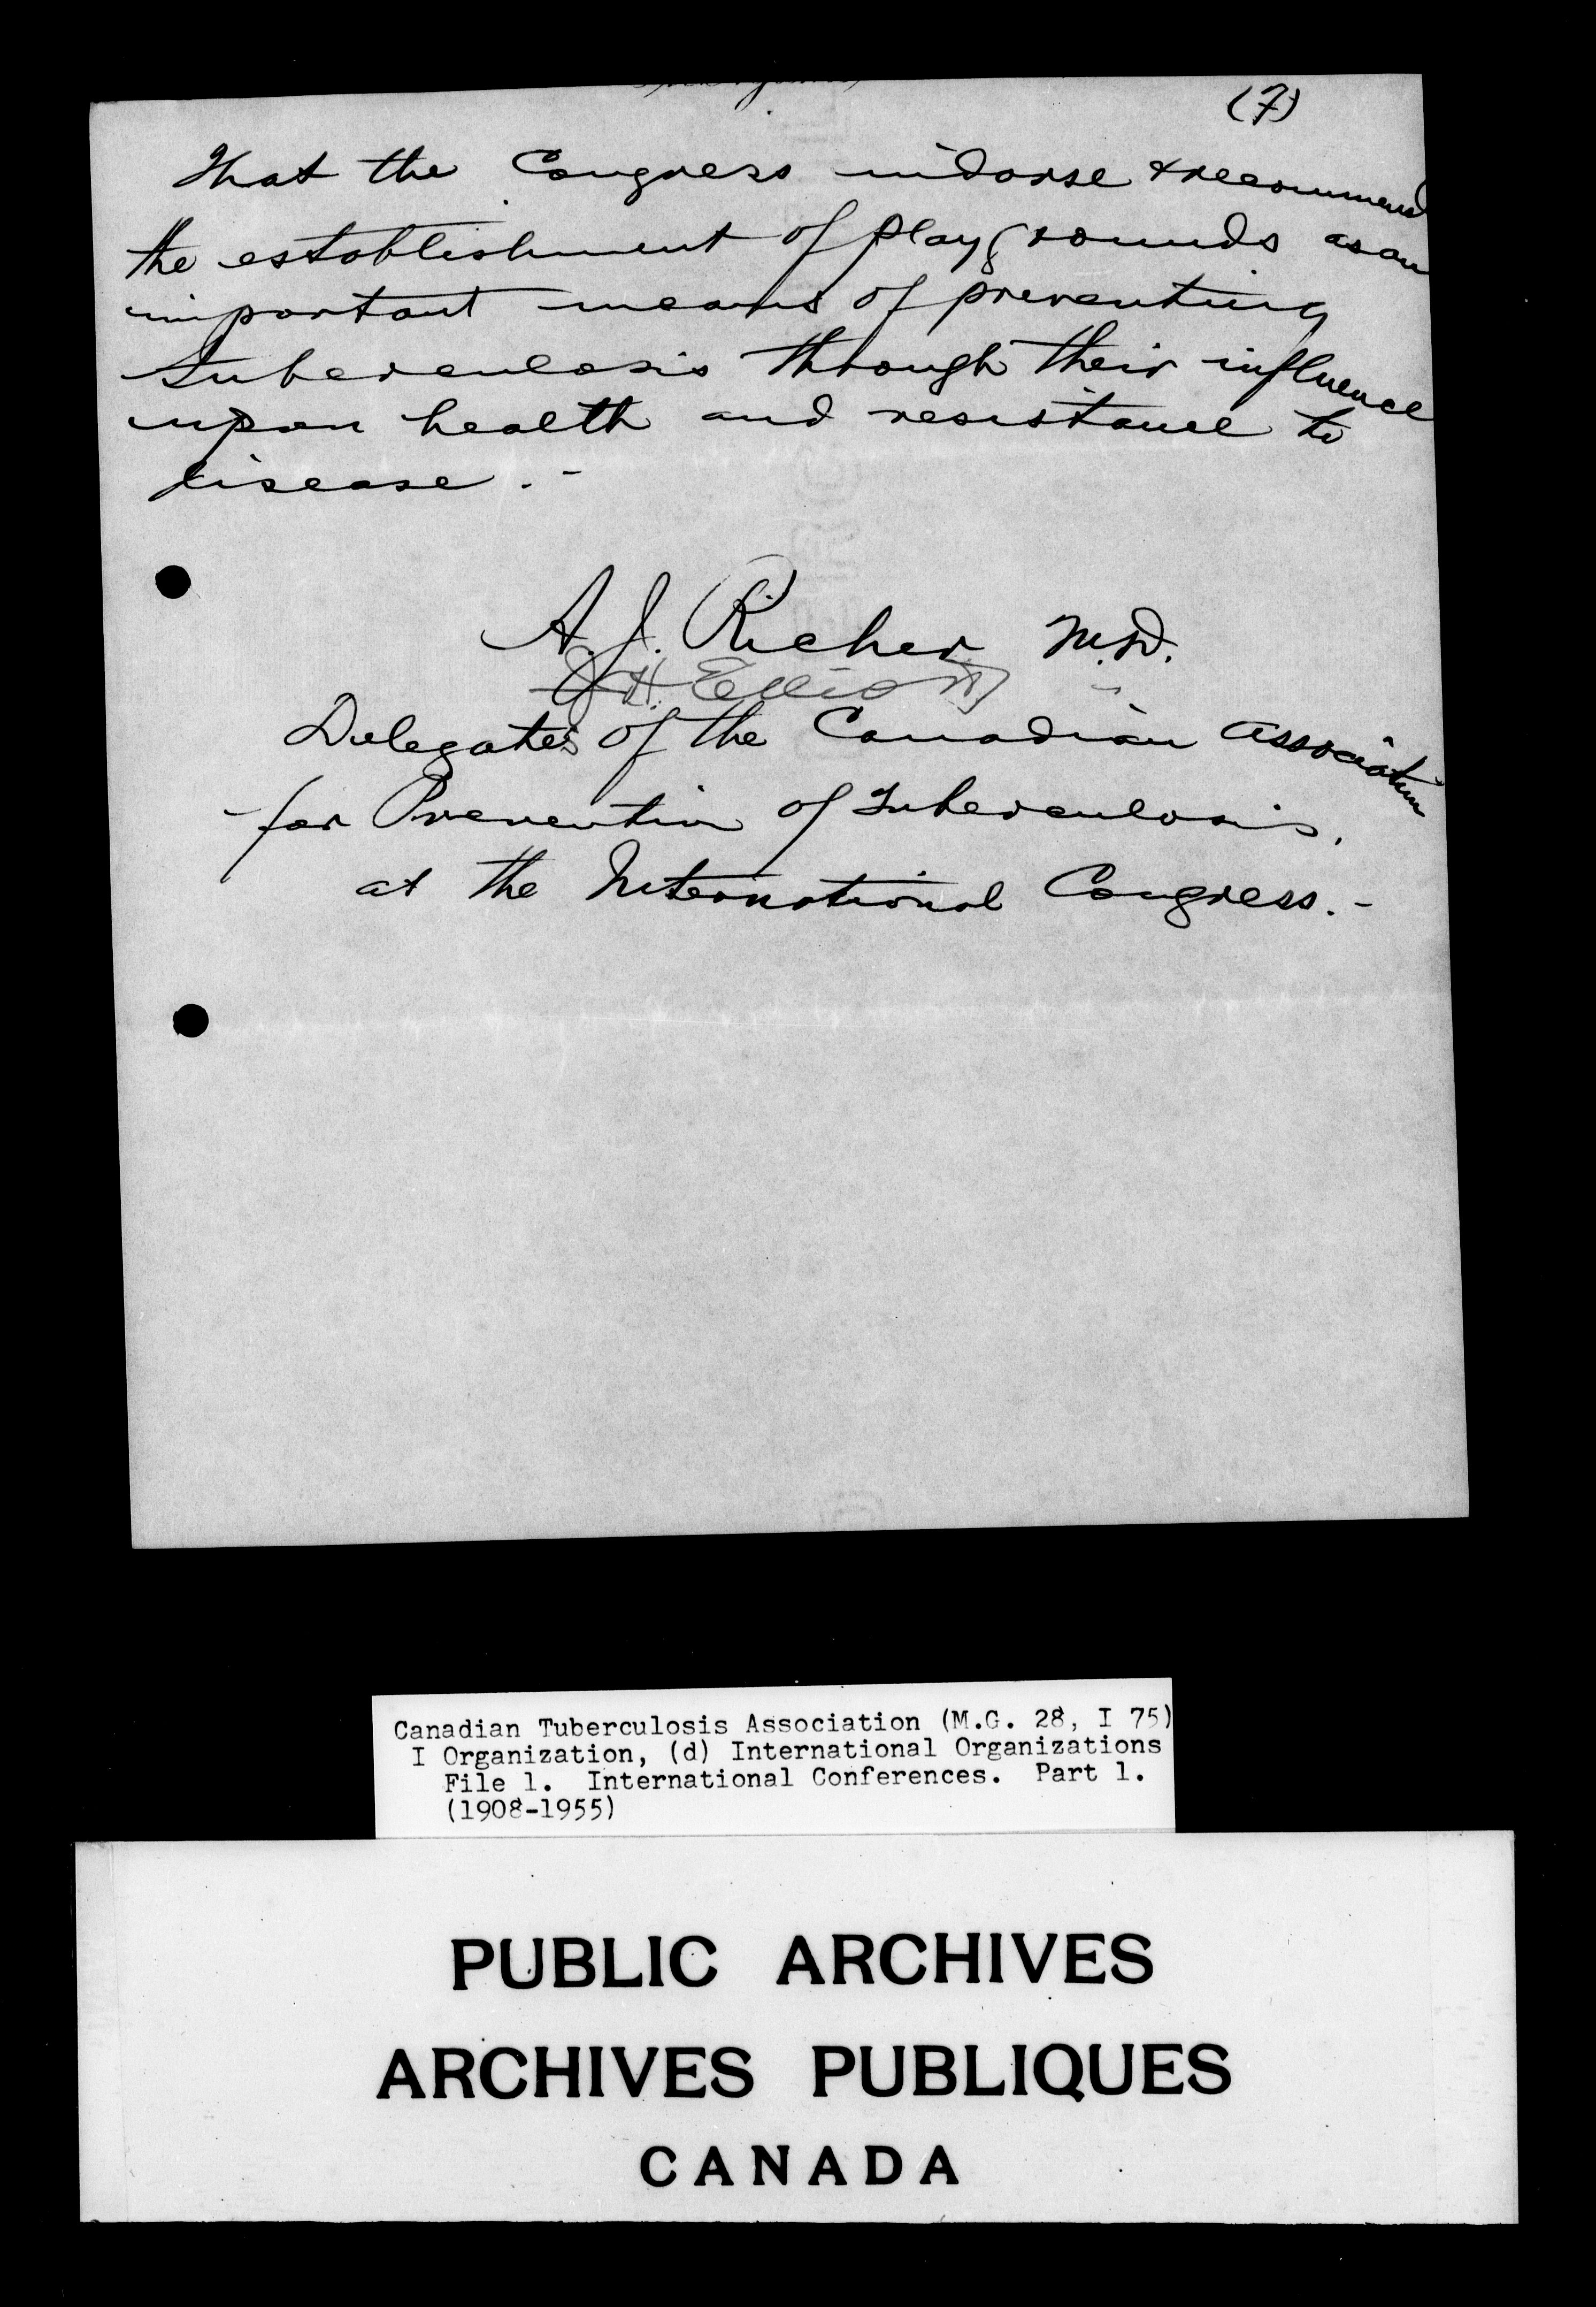 (7)
That the Congress indorse & recommend
the establishment of playgrounds as an
important means of preventing
tuberculosis through their influence
upon health and resistance to
disease. -
A. J. Richer M.D.
J H. Elliott "
Delegates of the Canadian Association
for Prevention of Tuberculosis.
at the International Congress. -
Canadian Tuberculosis Association (M.G. 28, I 75)
I Organization, (d) International Organizations
File 1. International Conferences. Part 1.
(1908-1955)
PUBLIC ARCHIVES
ARCHIVES PUBLIQUES
CANADA